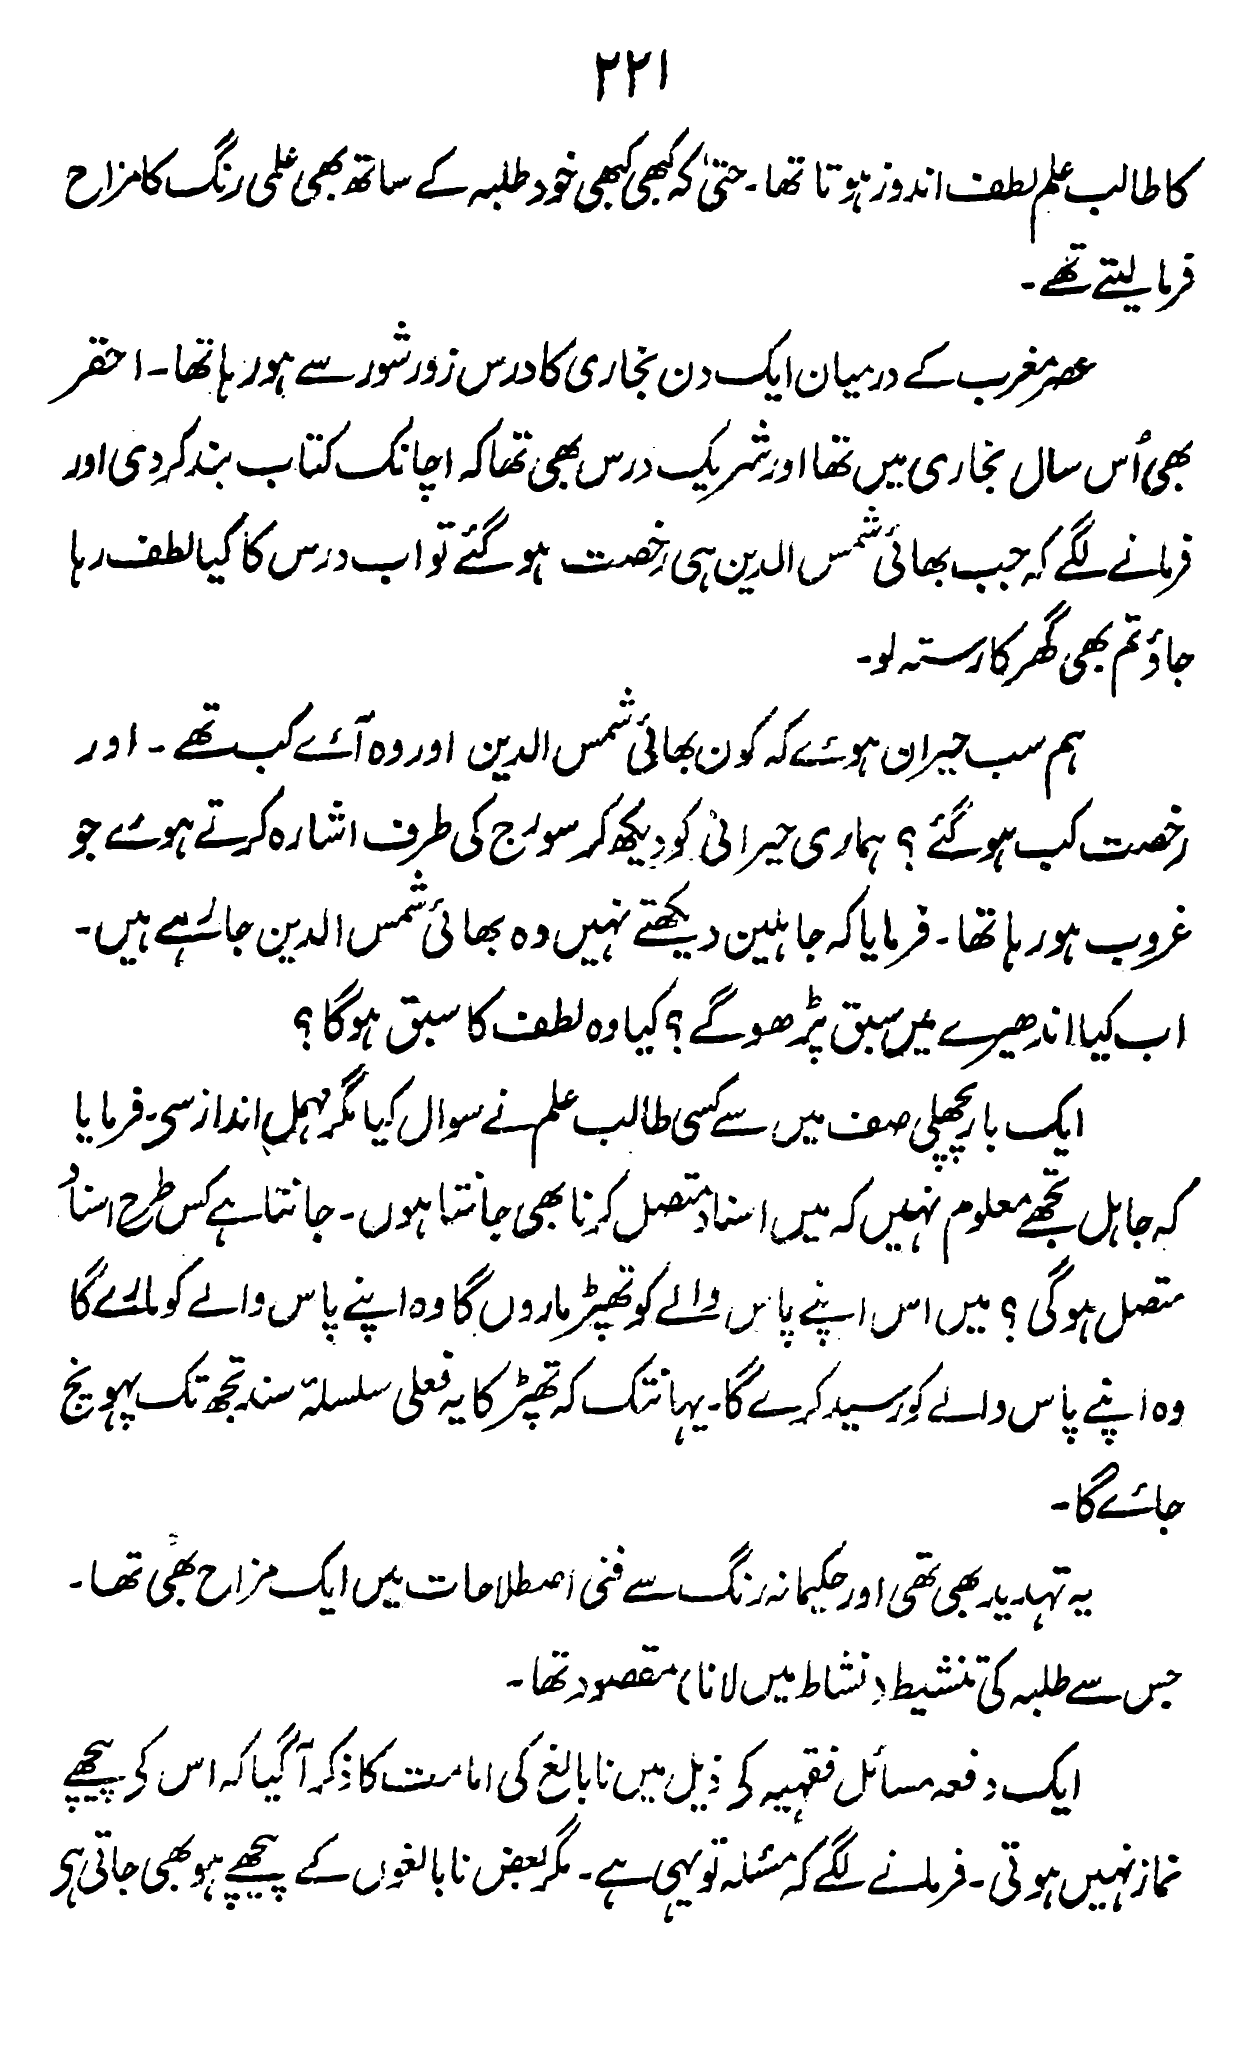 ۲۲۱
کا طالب علم لطف اندوز ہوتا تھا۔ حتیٰ کہ کبھی کبھی خود طلبہ کے ساتھ بھی علمی رنگ کا مزاح
فرما لیتے تھے۔
عصر مغرب کے درمیان ایک دن بخاری کا درس زور شور سے ہو رہا تھا۔ احقر
بھی اُس سال بخاری میں تھا اور شریک درس بھی تھا کہ اچانک کتاب بند کر دی اور
فرمانے لگے کہ جب بھائی شمس الدین ہی رخصت ہو گئے تو اب درس کا کیا لطف رہا
جاؤ تم بھی گھر کا رستہ لو۔
ہم سب حیران ہوئے کہ کون بھائی شمس الدین اور وہ آئے کب تھے۔ اور
رخصت کب ہو گئے؟ ہماری حیرانی کو دیکھ کر سورج کی طرف اشارہ کرتے ہوئے جو
غروب ہو رہا تھا۔ فرمایا کہ جاہلین دیکھتے نہیں وہ بھائی شمس الدین جا رہے ہیں۔
اب کیا اندھیرے میں سبق پڑھو گے؟ کیا وہ لطف کا سبق ہو گا؟
ایک بار پچھلی صف میں سے کسی طالب علم نے سوال کیا مگر مہمل انداز سی۔ فرمایا
کہ جاہل تجھے معلوم نہیں کہ میں اسناد متصل کرنا بھی جانتا ہوں۔ جانتا ہے کس طرح اسناد
متصل ہو گی؟ میں اس اپنے پاس والے کو تھپڑ ماروں گا وہ اپنے پاس والے کو مارے گا
وہ اپنے پاس والے کو رسید کرے گا۔ یہانتک کہ تھپڑ کا یہ فعلی سلسلۂ سند تجھ تک پہونچ
جائے گا۔
یہ تہدید بھی تھی اور حکیمانہ رنگ سے فنی اصطلاحات میں ایک مزاح بھی تھا۔
جس سے طلبہ کی تنشیط (نشاط میں لانا) مقصود تھا۔
ایک دفعہ مسائل فقہیہ کی ذیل میں نابالغ کی امامت کا ذکر آگیا کہ اس کی پیچھے
نماز نہیں ہوتی۔ فرمانے لگے کہ مسئلہ تو یہی ہے۔ مگر بعض نابالغوں کے پیچھے ہو بھی جاتی ہی